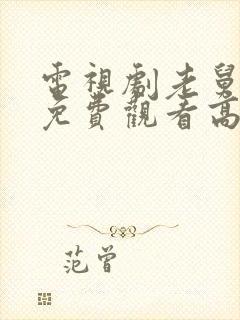 電視劇老舅
免費觀看高
范曾